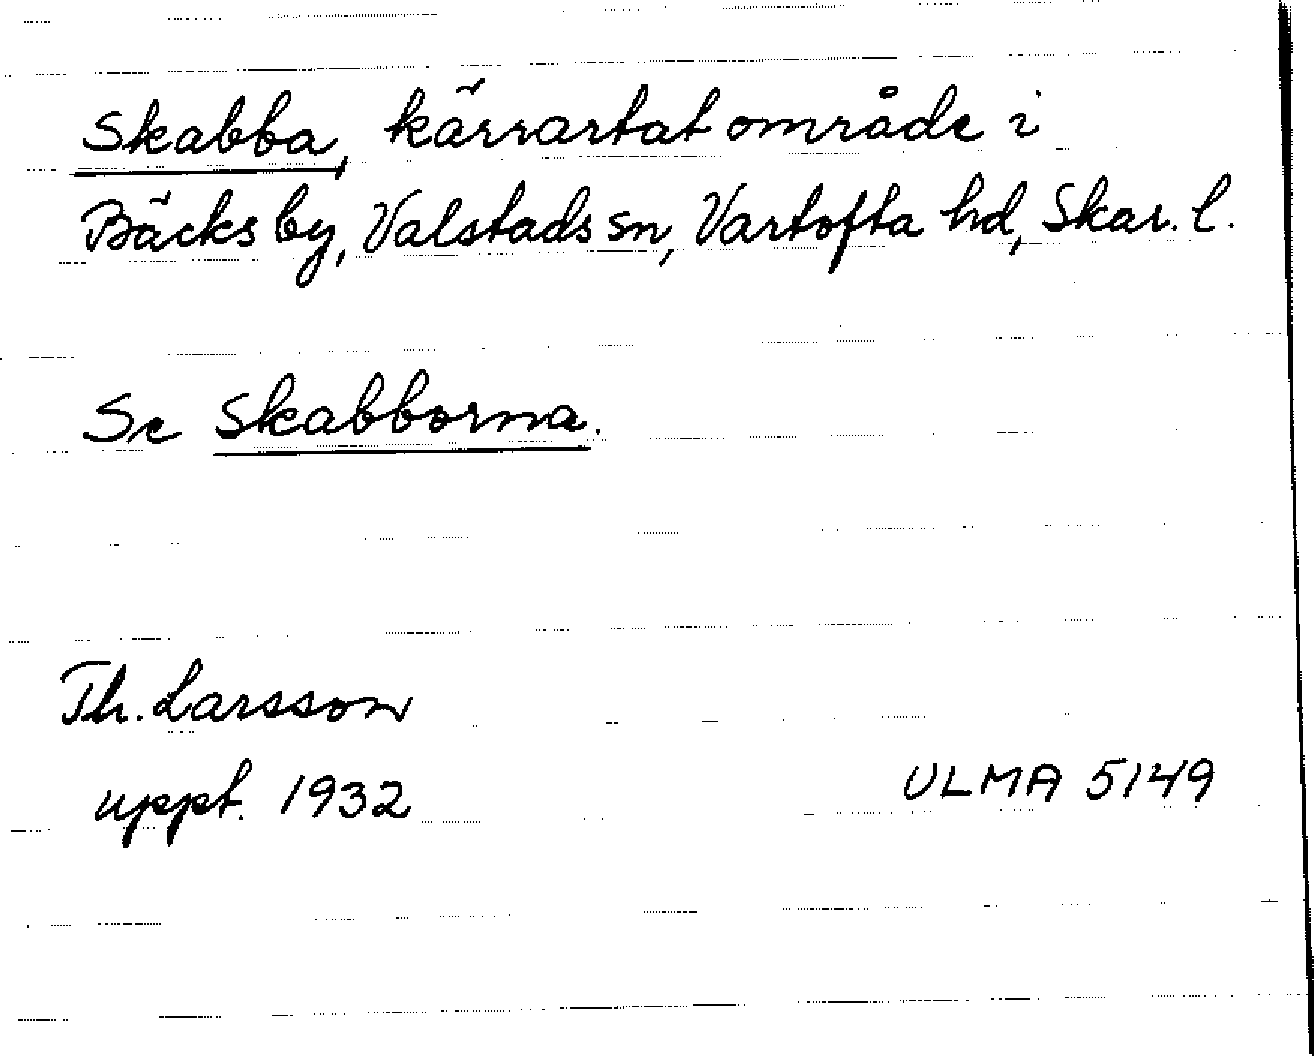 Skabba, kärrartat område i
Bäcksby, Valstads sn, Vartofta hd, Skar. l.
Se Skabborna.
Th. Larsson
uppt. 1932
ULMA 5149